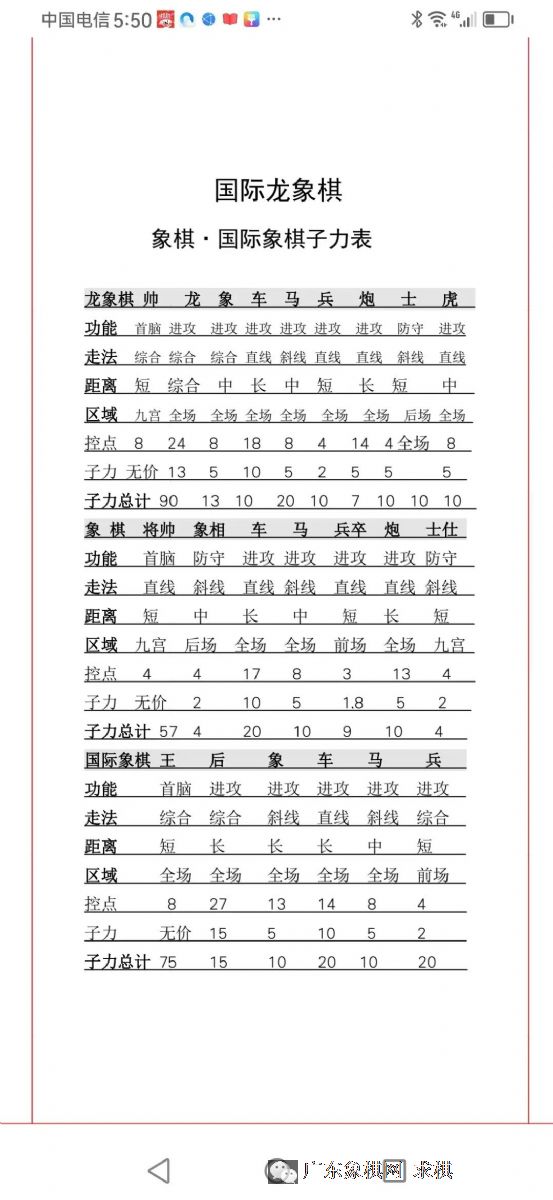 中国电信 5:50 ···
4G
国际龙象棋
象棋·国际象棋子力表
龙象棋 帅 龙 象 车 马 兵 炮 士 虎
功能 首脑 进攻 进攻 进攻 进攻 进攻 进攻 防守 进攻
走法 综合 综合 综合 直线 斜线 直线 直线 斜线 直线
距离 短 综合 中 长 中 短 长 短 中
区域 九宫 全场 全场 全场 全场 全场 全场 后场 全场
控点 8 24 8 18 8 4 14 4 全场 8
子力 无价 13 5 10 5 2 5 5 5
子力总计 90 13 10 20 10 7 10 10 10
象 棋 将帅 象相 车 马 兵卒 炮 士仕
功能 首脑 防守 进攻 进攻 进攻 进攻 防守
走法 直线 斜线 直线 斜线 直线 直线 斜线
距离 短 中 长 中 短 长 短
区域 九宫 后场 全场 全场 前场 全场 九宫
控点 4 4 17 8 3 13 4
子力 无价 2 10 5 1.8 5 2
子力总计 57 4 20 10 9 10 4
国际象棋 王 后 象 车 马 兵
功能 首脑 进攻 进攻 进攻 进攻 进攻
走法 综合 综合 斜线 直线 斜线 综合
距离 短 长 长 长 中 短
区域 全场 全场 全场 全场 全场 前场
控点 8 27 13 14 8 4
子力 无价 15 5 10 5 2
子力总计 75 15 10 20 10 20
广东象棋网 求棋